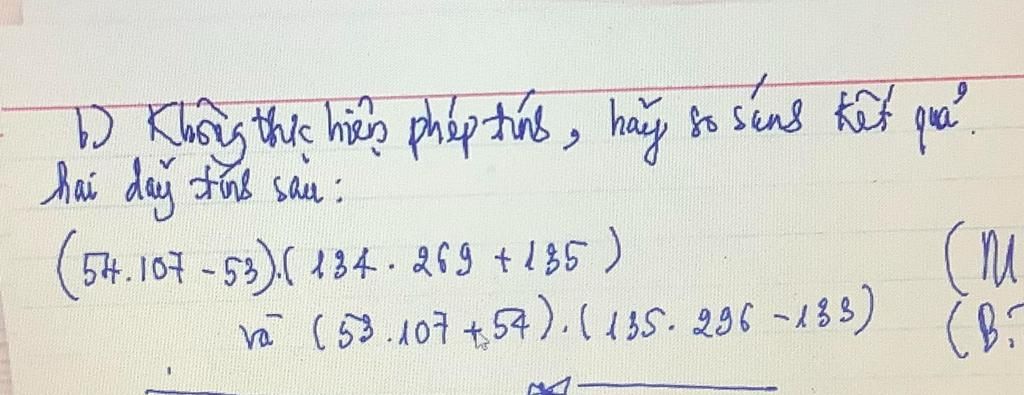 b) Không thực hiện phép tính, hãy so sánh kết quả
hai dãy tính sau:
(54.107 - 53).(134. 269 + 135)
(M
và (53.107 + 54).(135. 296 - 133)
(B: